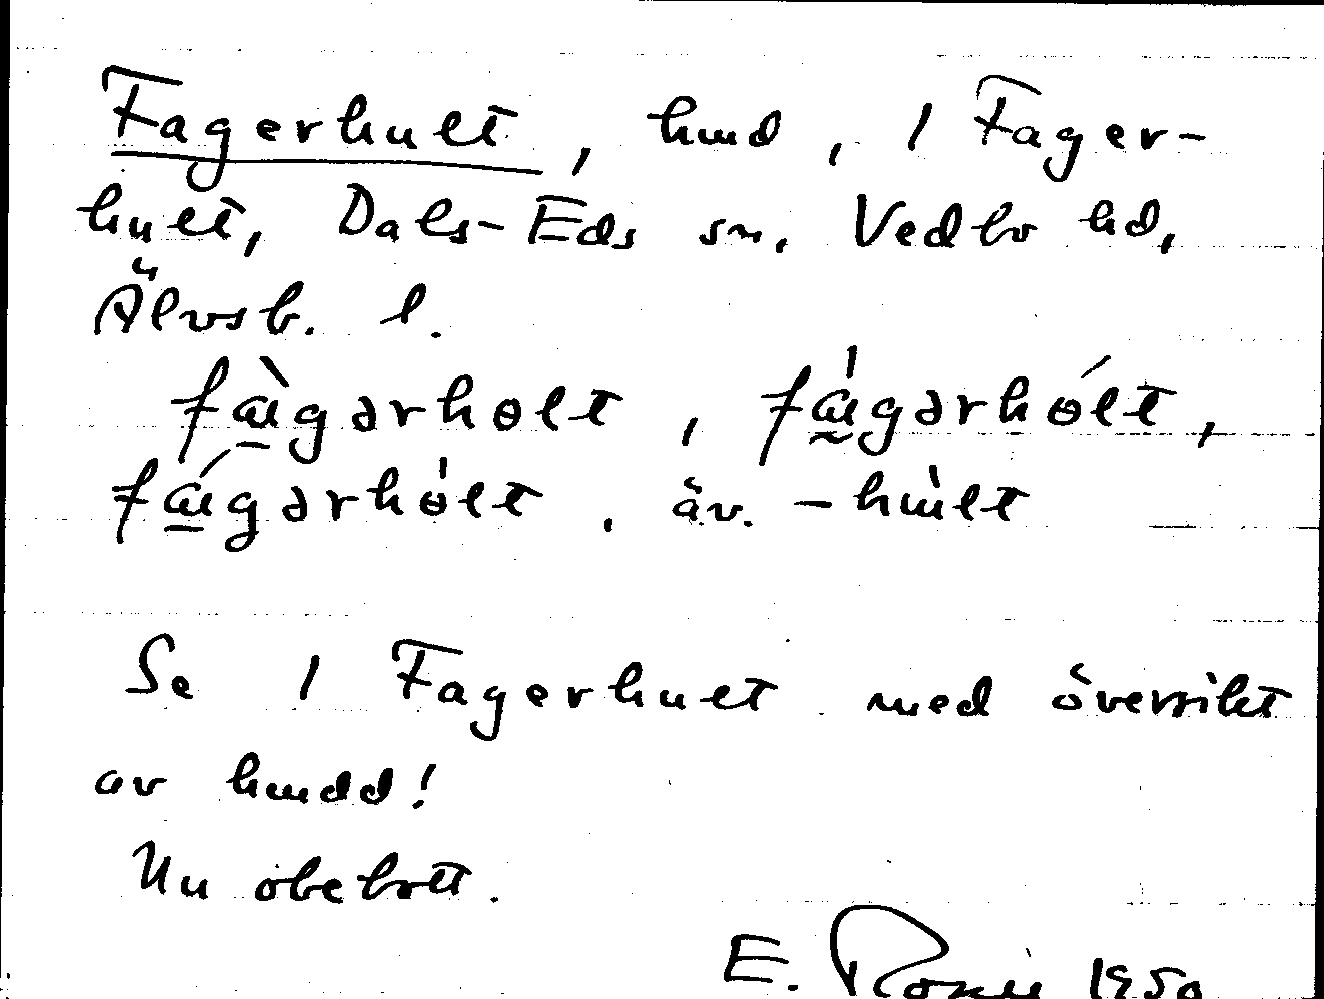 Fagerhult, hmd, 1 Fager-
hult, Dals-Eds sn, Vedbo hd,
Älvsb. l.
fàgərhɵlt, fágərhɵ́lt,
fágərhɵ́lt, äv. -hùlt
Se 1 Fagerhult med översikt
av hmdd!
Nu obebott.
E. 1950